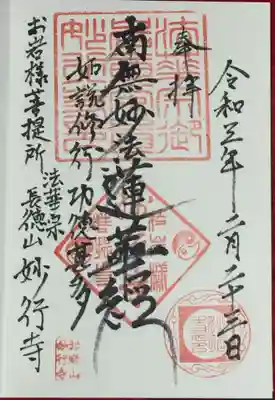 令和三年二月二十三日
奉拝
南無妙法蓮華経
如説修行功徳甚多
お岩様菩提所
法華宗
長徳山 妙行寺